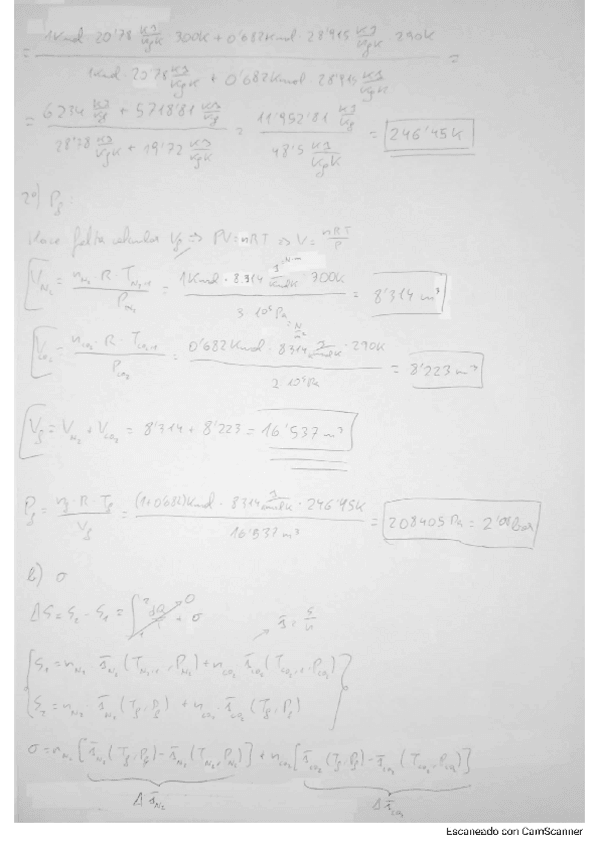 = (1Kmol · 20'78 KJ/KgK · 300K + 0'682Kmol · 28'915 KJ/KgK · 290K) / (1Kmol · 20'78 KJ/KgK + 0'682Kmol · 28'915 KJ/KgK) =
= (6234 KJ/Kg + 5718'81 KJ/Kg) / (28'78 KJ/KgK + 19'72 KJ/KgK) = (11'952'81 KJ/Kg) / (48'5 KJ/KgK) = 246'45K
2º) Pf:
Hace falta calcular Vf => PV=nRT => V = nRT/P
V_N2 = (n_N2 · R · T_N2,1) / P_N2 = (1Kmol · 8314 J/KmolK · 300K) / (3·10⁵ Pa) = 8'314 m³
V_CO2 = (n_CO2 · R · T_CO2,1) / P_CO2 = (0'682Kmol · 8314 J/KmolK · 290K) / (2·10⁵ Pa) = 8'223 m³
Vf = V_N2 + V_CO2 = 8'314 + 8'223 = 16'537 m³
Pf = (nf · R · Tf) / Vf = ((1+0'682)Kmol · 8314 J/KmolK · 246'45K) / (16'537 m³) = 208405 Pa = 2'08 bar
b) σ
ΔS = S₂ - S₁ = ∫₁² dQ/T 0 + σ
s̄ = S/n
S₁ = n_N2 · s̄_N2 (T_N2,1, P_N2) + n_CO2 · s̄_CO2 (T_CO2,1, P_CO2)
S₂ = n_N2 · s̄_N2 (Tf, Pf) + n_CO2 · s̄_CO2 (Tf, Pf)
σ = n_N2 [s̄_N2 (Tf, Pf) - s̄_N2 (T_N2, P_N2)] + n_CO2 [s̄_CO2 (Tf, Pf) - s̄_CO2 (T_CO2, P_CO2)]
Δs̄_N2 Δs̄_CO2
Escaneado con CamScanner